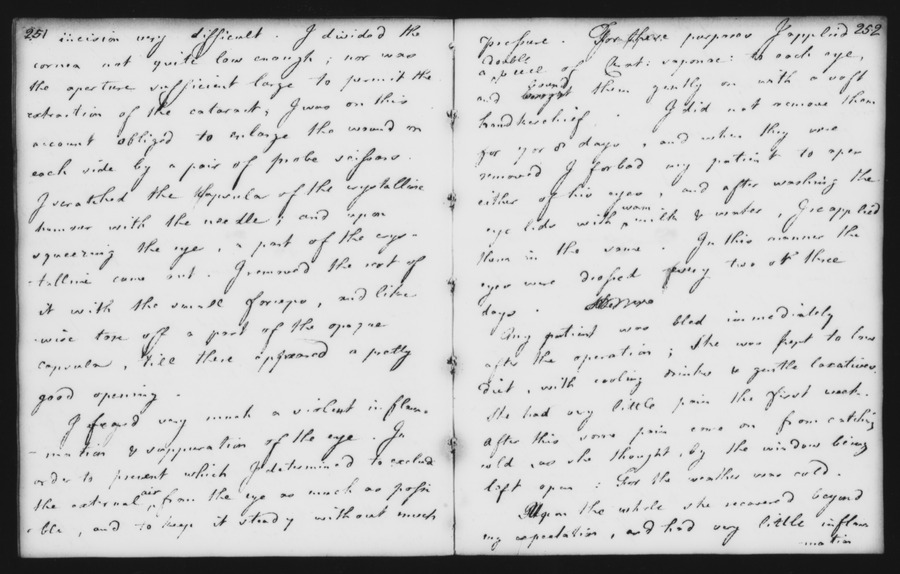 251
incision very difficult. I divided the
cornea not quite low enough; nor was
the aperture sufficient large to permit the
extraction of the cataract; I was on this
account obliged to enlarge the wound on
each side by a pair of probe scissars.
I scratched the Capsula of the crystalline
humour with the needle; and upon
squeezing the eye, a part of the crys-
-talline came out. I removed the rest of
it with the small forceps, and like
-wise tore off a part of the opaque
capsula, till there appeared a pretty
good opening.
I feared very much a violent inflam-
-mation & suppuration of the eye. In
order to prevent which I determined to exclude
the external air, from the eye as much as possi
-ble, and to keep it steady without much
252
pressure. For these purposes I applied
double
a piece of Cat: saponac: to each eye,
and bound them gently on with a soft
handkerchief. I did not remove them
for 7 or 8 days, and when they were
removed I forbad my patient to open
either of his eyes, and after washing the
eye lids with warm milk & water, I reapplied
them in the same. In this manner the
eyes were dressed every two or three
days.
My patient was bled immediately
after the operation; She was kept to low
diet, with cooling drinks & gentle laxatives.
She had very little pain the first week.
After this some pain came on from catching
cold, as she thought, by the window being
left open: For the weather was cold.
Upon the whole she recovered beyond
my expectation, and had very little inflam
-mation